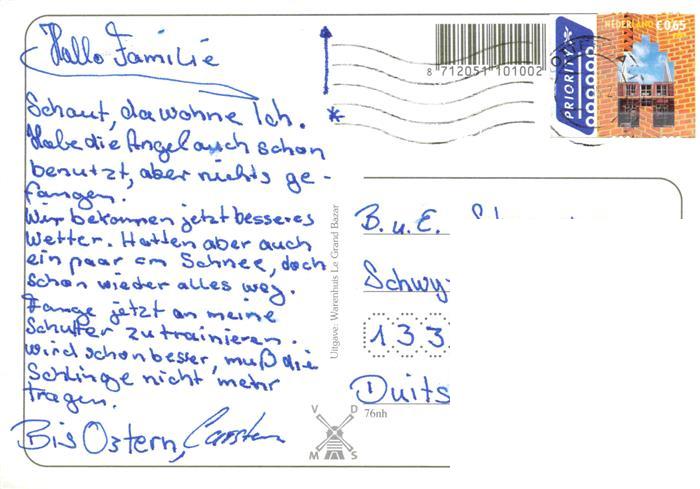 Hallo Familie
Schaut, da wohne Ich.
Habe die Angel auch schon
benutzt, aber nichts ge-
fangen.
Wir bekommen jetzt besseres
Wetter. Hatten aber auch
ein paar cm Schnee, doch
schon wieder alles weg.
Fange jetzt an meine
Schulter zu trainieren.
Wird schon besser, muß die
Schlinge nicht mehr
tragen.
Bis Ostern, Carsten
*
8 712051 101002
PRIORITY
NEDERLAND € 0,65
Uitgave: Warenhuis Le Grand Bazar
B. u. E.
Schwy
133
Duits
76nh
V D
M S